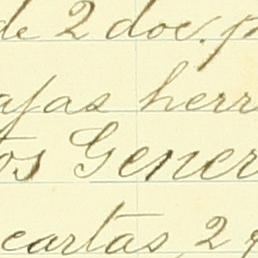 de 2 doc.
afas herr
os Gener
cartas, 2